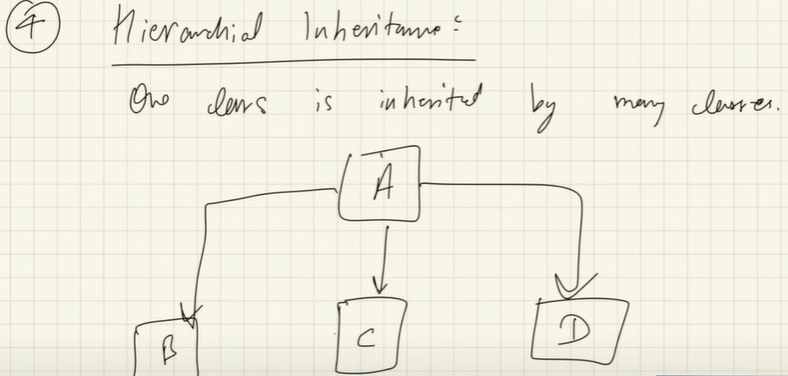 4
Hierarchial Inheritance:
One class is inherited by many classes.
A
B
C
D